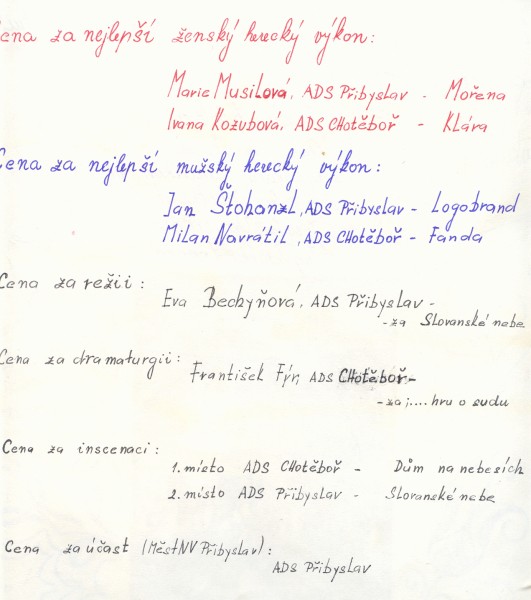 Cena za nejlepší ženský herecký výkon:
Marie Musilová, ADS Přibyslav - Mořena
Ivana Kozubová, ADS CHotěboř - Klára
Cena za nejlepší mužský herecký výkon:
Jan Štohanzl, ADS Přibyslav - Logobrand
Milan Navrátil, ADS CHotěboř - Fanda
Cena za režii:
Eva Bechyňová, ADS Přibyslav -
- za Slovanské nebe
Cena za dramaturgii:
František Fýr, ADS CHotěboř -
- za j.... hru o sudu
Cena za inscenaci:
1. místo ADS CHotěboř - Dům na nebesích
2. místo ADS Přibyslav - Slovanské nebe
Cena za účast (MěstNV Přibyslav):
ADS Přibyslav